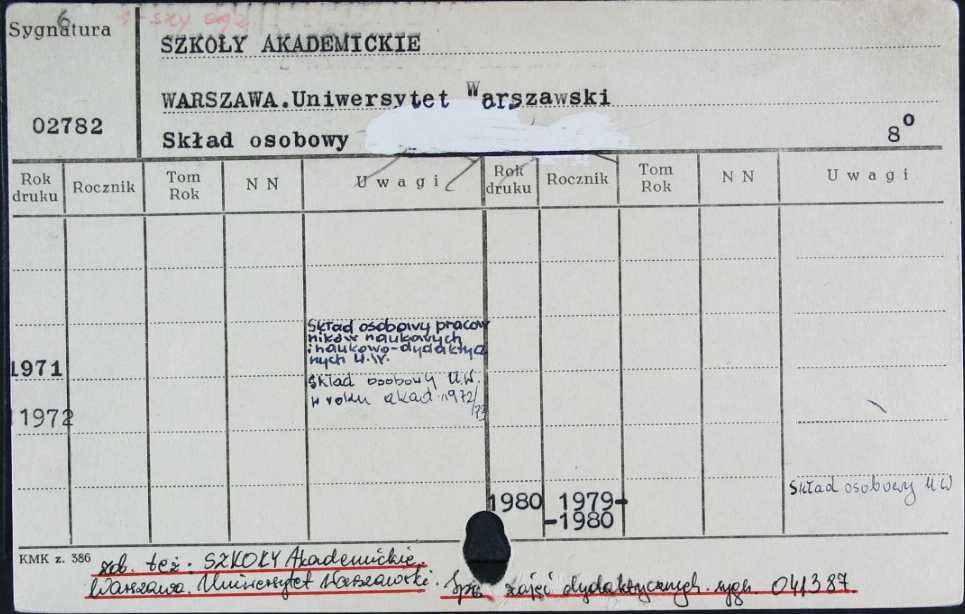 6
Sygnatura
SZKOŁY AKADEMICKIE
WARSZAWA.Uniwersytet Warszawski
02782
Skład osobowy
8°
Rok druku Rocznik Tom Rok N N Uwagi Rok druku Rocznik Tom Rok N N Uwagi
Skład osobowy pracow
ników naukowych
i naukowo-dydakty
nych U.W.
1971
Skład osobowy U.W.
w roku akad. 1972/
/73
1972
Skład osobowy UW
1980 1979-
-1980
KMK z. 386
zob. też: SZKOŁY Akademickie.
Warszawa. Uniwersytet Warszawski. Spis zajęć dydaktycznych. sygn. 041387.